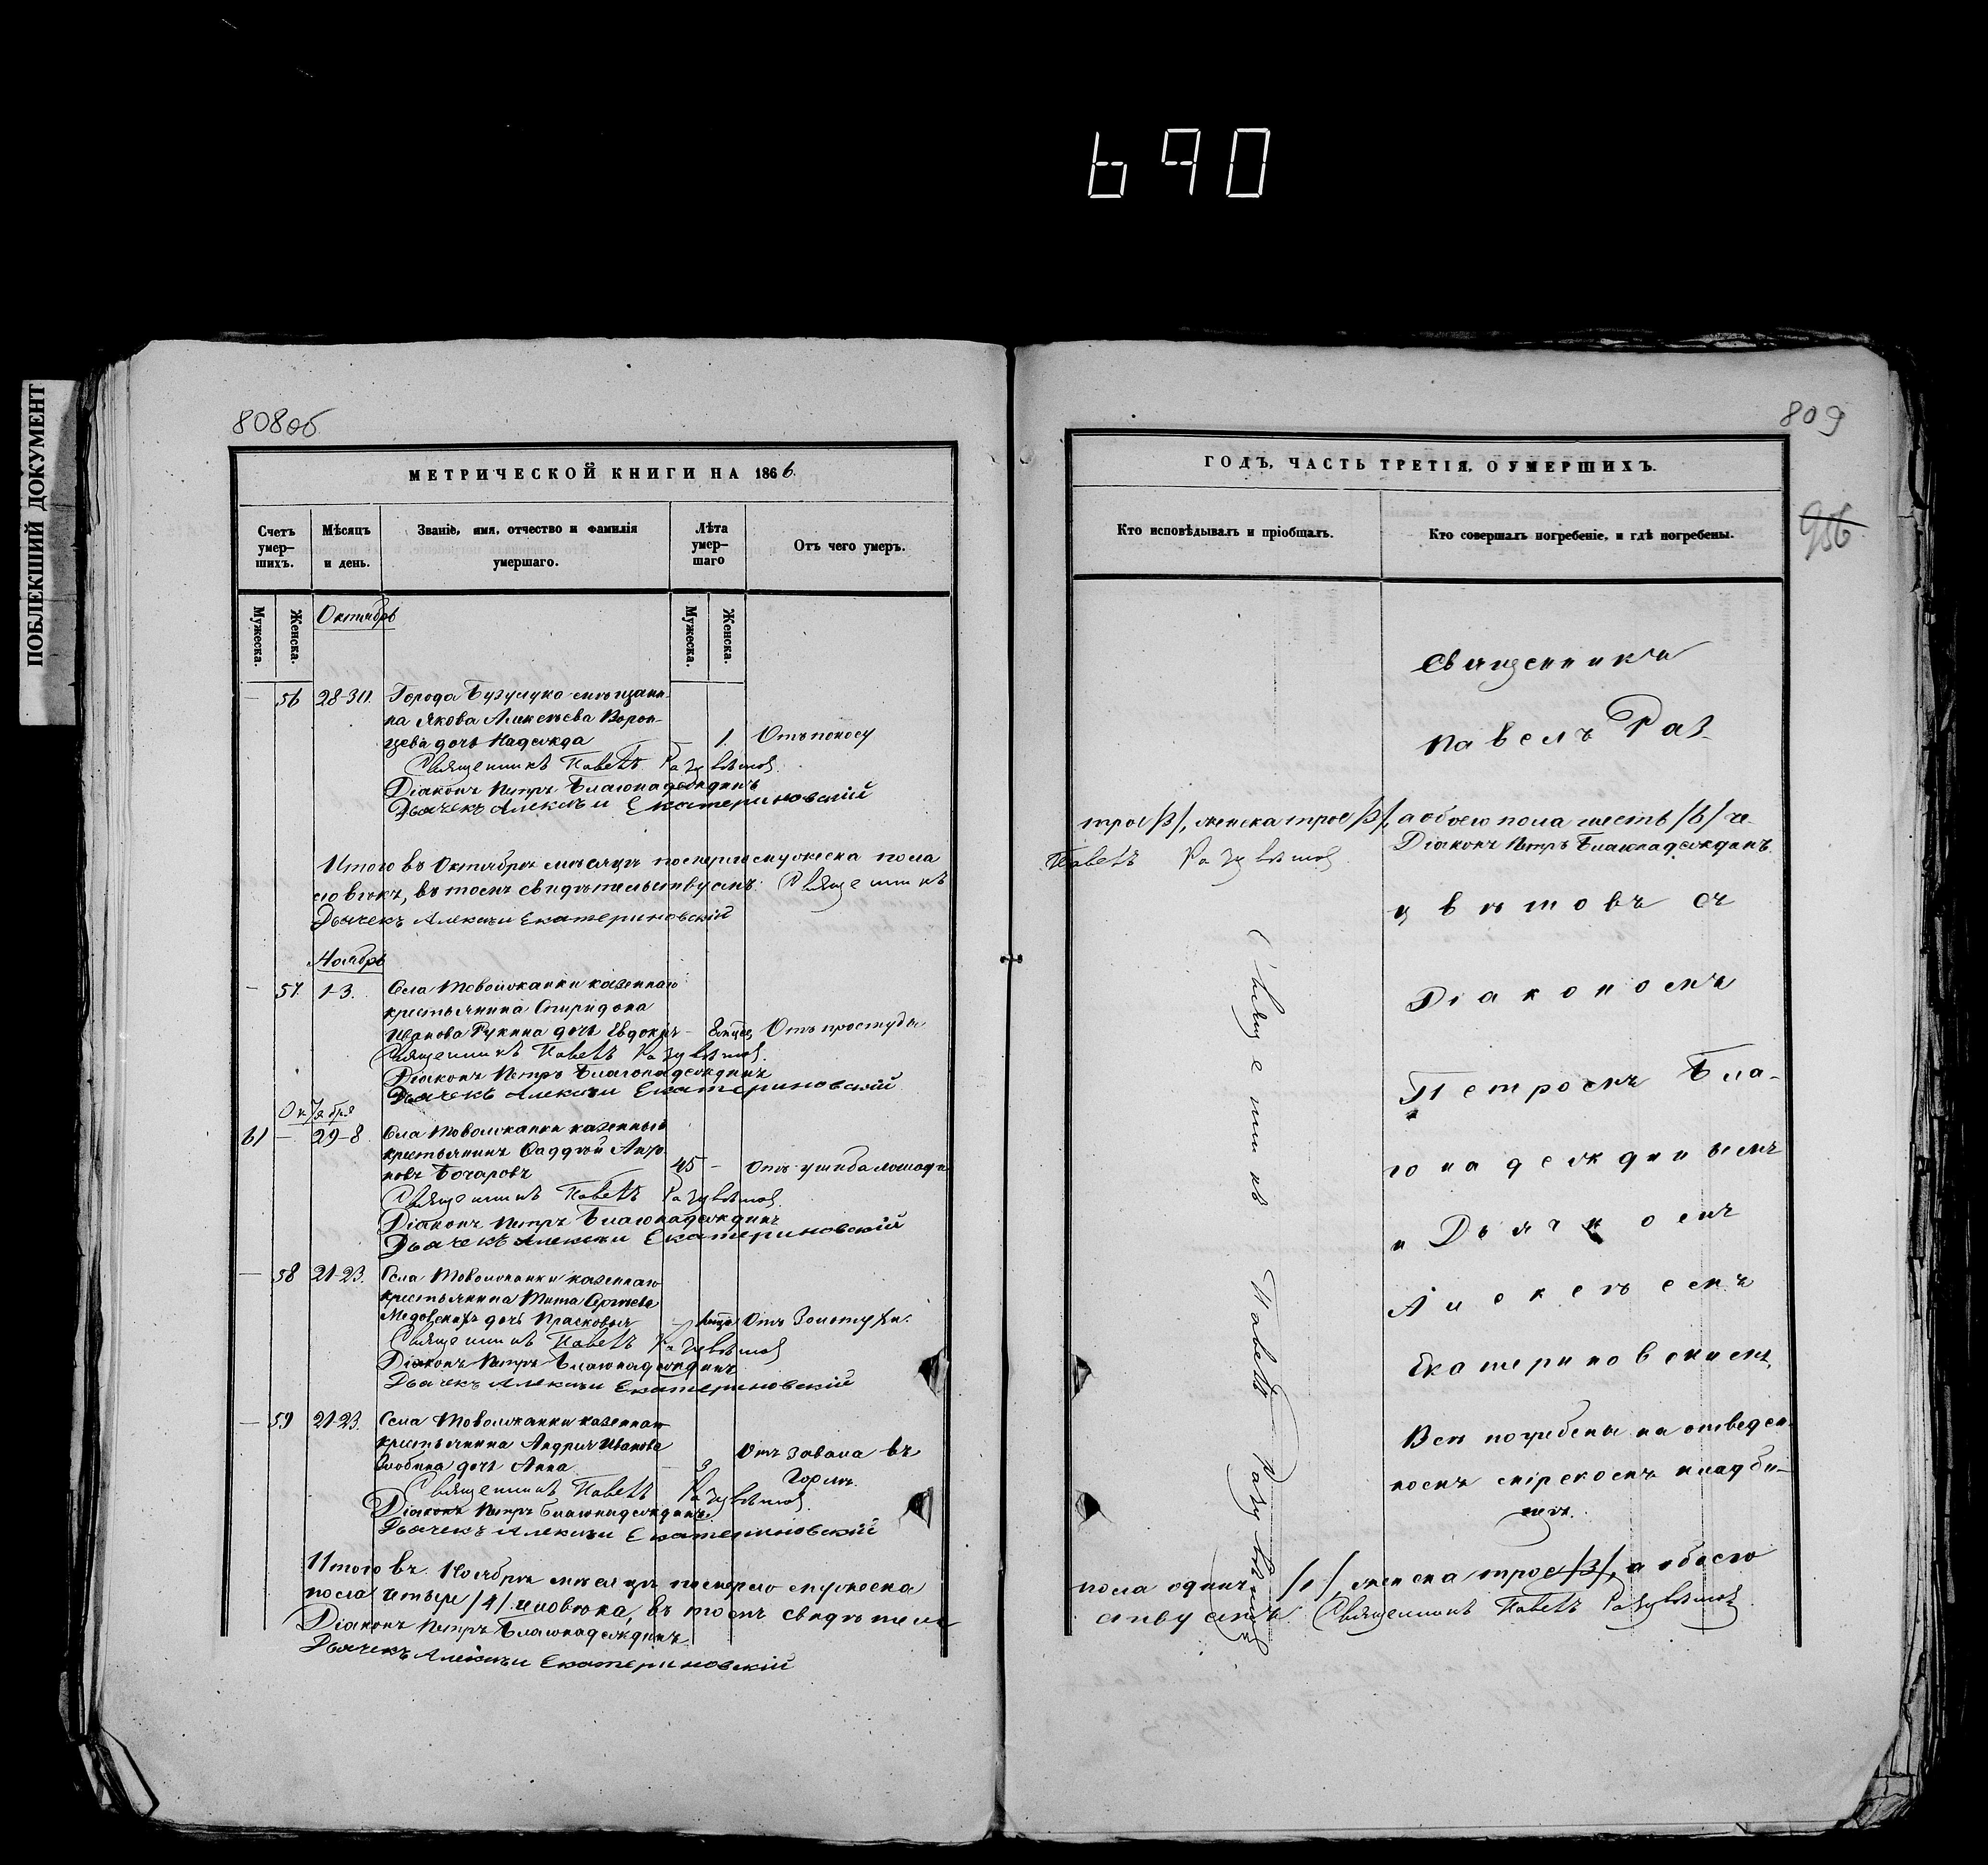 690
ПОБЛЕКШИЙ ДОКУМЕНТ
808об
МЕТРИЧЕСКОЙ КНИГИ НА 1866.
Счетъ умер-шихъ.
Мѣсяцъ и день.
Званіе, имя, отчество и фамилія умершаго.
Лѣта умер-шаго
Отъ чего умеръ.
Мужеска.
Женска.
Мужеска.
Женска.
Октябрь
— 56 28-30. Города Бузулука мѣщани-
на Якова Алексѣева Ворон-
цева дочь Надежда — 1. Отъ поносу
Священникъ Павелъ Разцвѣтовъ
Діаконъ Петръ Благонадеждинъ
Дьячекъ Алексѣй Екатериновскій
Итого въ Октябрѣ мѣсяцѣ померло мужеска пола
ловѣкъ, въ томъ свидѣтельствуемъ: Священникъ
Дьячекъ Алексѣй Екатериновскій
Ноябрь
— 57 1-3. Села Товолжанки казеннаго
крестьянина Спиридона
Иванова Рукина дочь Евдокія — Отъ простуды
Священникъ Павелъ Разцвѣтовъ
Діаконъ Петръ Благонадеждинъ
Дьячекъ Алексѣй Екатериновскій
Октября
61 — 29-8 Села Товолжанки казенный
крестьянинъ Фаддѣй
Бочаровъ 45 — Отъ ушиба лошади
Священникъ Павелъ Разцвѣтовъ
Діаконъ Петръ Благонадеждинъ
Дьячекъ Алексѣй Екатериновскій
— 58 21-23. Села Товолжанки казеннаго
крестьянина Тита Сергѣева
дочь Прасковья — Отъ Золотухи.
Священникъ Павелъ Разцвѣтовъ
Діаконъ Петръ Благонадеждинъ
Дьячекъ Алексѣй Екатериновскій
— 59 21-23. Села Товолжанки казеннаго
крестьянина Андрея Иванова
Злобина дочь Анна — 3 Отъ завала въ
Горлѣ.
Священникъ Павелъ Разцвѣтовъ
Діаконъ Петръ Благонадеждинъ
Дьячекъ Алексѣй Екатериновскій
Итого въ Ноябрѣ мѣсяцѣ померло мужеска
пола четыре /4/ человѣка, въ томъ свидѣтель
Діаконъ Петръ Благонадеждинъ
Дьячекъ Алексѣй Екатериновскій
809
956
ГОДЪ, ЧАСТЬ ТРЕТІЯ, О УМЕРШИХЪ.
Кто исповѣдывалъ и пріобщалъ.
Кто совершалъ погребеніе, и гдѣ погребены.
Священникъ
Павелъ Раз-
трое /3/, женска трое /3/, а обоего пола шесть /6/ че-
Павелъ Разцвѣтовъ Діаконъ Петръ Благонадеждинъ
цвѣтовъ съ
Діакономъ
Петромъ Бла-
гонадеждинымъ
и Дьячкомъ
Алексѣемъ
Екатериновскимъ.
Всѣ погребены на отведен-
номъ мірскомъ кладби-
щѣ.
Священникъ Павелъ Разцвѣтовъ
пола одинъ /1/, женска трое /3/, а обоего
ствуемъ. Священникъ Павелъ Разцвѣтовъ